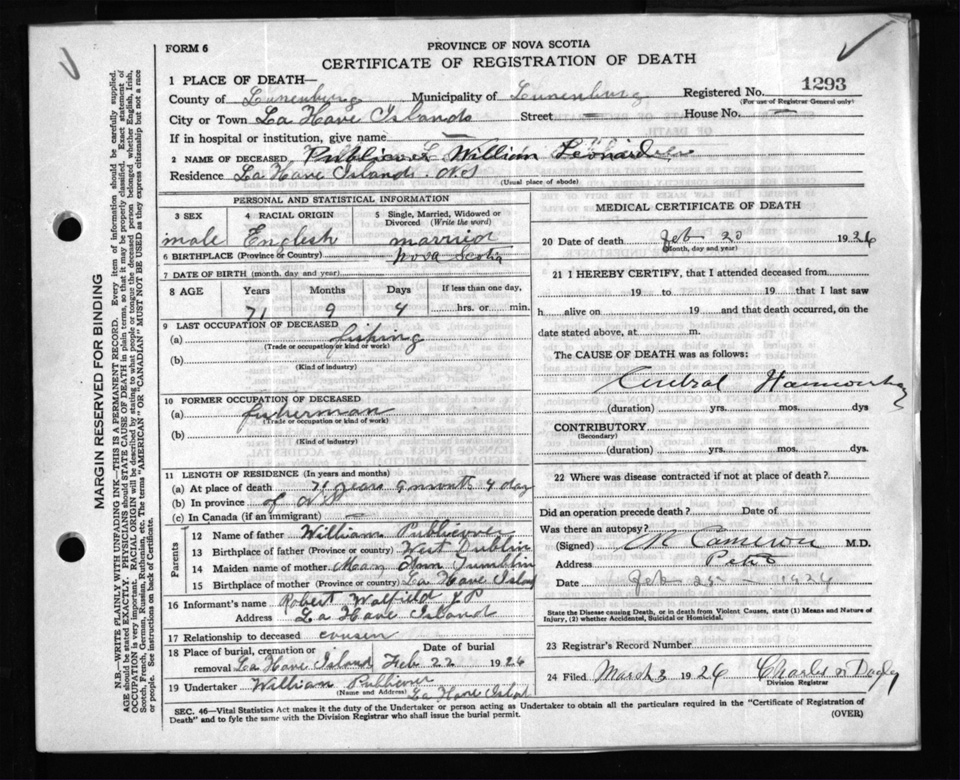 FORM 6
PROVINCE OF NOVA SCOTIA
CERTIFICATE OF REGISTRATION OF DEATH
1 PLACE OF DEATH—
Registered No. 1293
(For use of Registrar General only)
County of Lunenburg Municipality of Lunenburg
City or Town La Have Islands Street — House No. —
If in hospital or institution, give name —
2 NAME OF DECEASED Publicover William Leonard
Residence La Have Islands. N.S
(Usual place of abode)
PERSONAL AND STATISTICAL INFORMATION
3 SEX male
4 RACIAL ORIGIN English
5 Single, Married, Widowed or Divorced (Write the word) married
6 BIRTHPLACE (Province or Country) Nova Scotia
7 DATE OF BIRTH (month, day and year)
8 AGE Years Months Days If less than one day,
71 9 4 hrs. or min.
9 LAST OCCUPATION OF DECEASED
(a) fishing
(Trade or occupation or kind of work)
(b)
(Kind of industry)
10 FORMER OCCUPATION OF DECEASED
(a) fisherman
(Trade or occupation or kind of work)
(b)
(Kind of industry)
11 LENGTH OF RESIDENCE (In years and months)
(a) At place of death 71 years 9 month 4 day
(b) In province of N.S
(c) In Canada (if an immigrant) —
Parents
12 Name of father William Publicover
13 Birthplace of father (Province or country) West Dublin
14 Maiden name of mother Mary Ann
15 Birthplace of mother (Province or country) La Have Island
16 Informant's name Robert Walfield J P
Address La Have Island
17 Relationship to deceased cousin
18 Place of burial, cremation or removal La Have Island
Date of burial Feb 22 1926
19 Undertaker William Publicover
(Name and Address) La Have Island
MEDICAL CERTIFICATE OF DEATH
20 Date of death Feb 20 1926
(Month, day and year)
21 I HEREBY CERTIFY, that I attended deceased from
19 to 19 that I last saw
h alive on 19 and that death occurred, on the
date stated above, at m.
The CAUSE OF DEATH was as follows:
Cerebral
(duration) yrs. mos. dys
CONTRIBUTORY
(Secondary)
(duration) yrs. mos. dys.
22 Where was disease contracted if not at place of death?
Did an operation precede death? Date of
Was there an autopsy?
(Signed) Cameron M.D.
Address
Date Feb 25 — 1926
State the Disease causing Death, or in death from Violent Causes, state (1) Means and Nature of
Injury, (2) whether Accidental, Suicidal or Homicidal.
23 Registrar's Record Number
24 Filed March 3 1926 Charles
Division Registrar
SEC. 46—Vital Statistics Act makes it the duty of the Undertaker or person acting as Undertaker to obtain all the particulars required in the "Certificate of Registration of
Death" and to fyle the same with the Division Registrar who shall issue the burial permit.
(OVER)
MARGIN RESERVED FOR BINDING
N.B.—WRITE PLAINLY WITH UNFADING INK—THIS IS A PERMANENT RECORD. Every item of information should be carefully supplied.
AGE should be stated EXACTLY. PHYSICIANS should STATE CAUSE OF DEATH in plain terms, so that it may be properly classified. Exact statement of
OCCUPATION is very important. RACIAL ORIGIN will be described by stating to what people or tongue the deceased person belonged whether English, Irish,
Scotch, French, German, Russian, Ruthenian, etc. The terms "AMERICAN" OR "CANADIAN" MUST NOT BE USED as they express citizenship but not a race
or people. See instructions on back of Certificate.